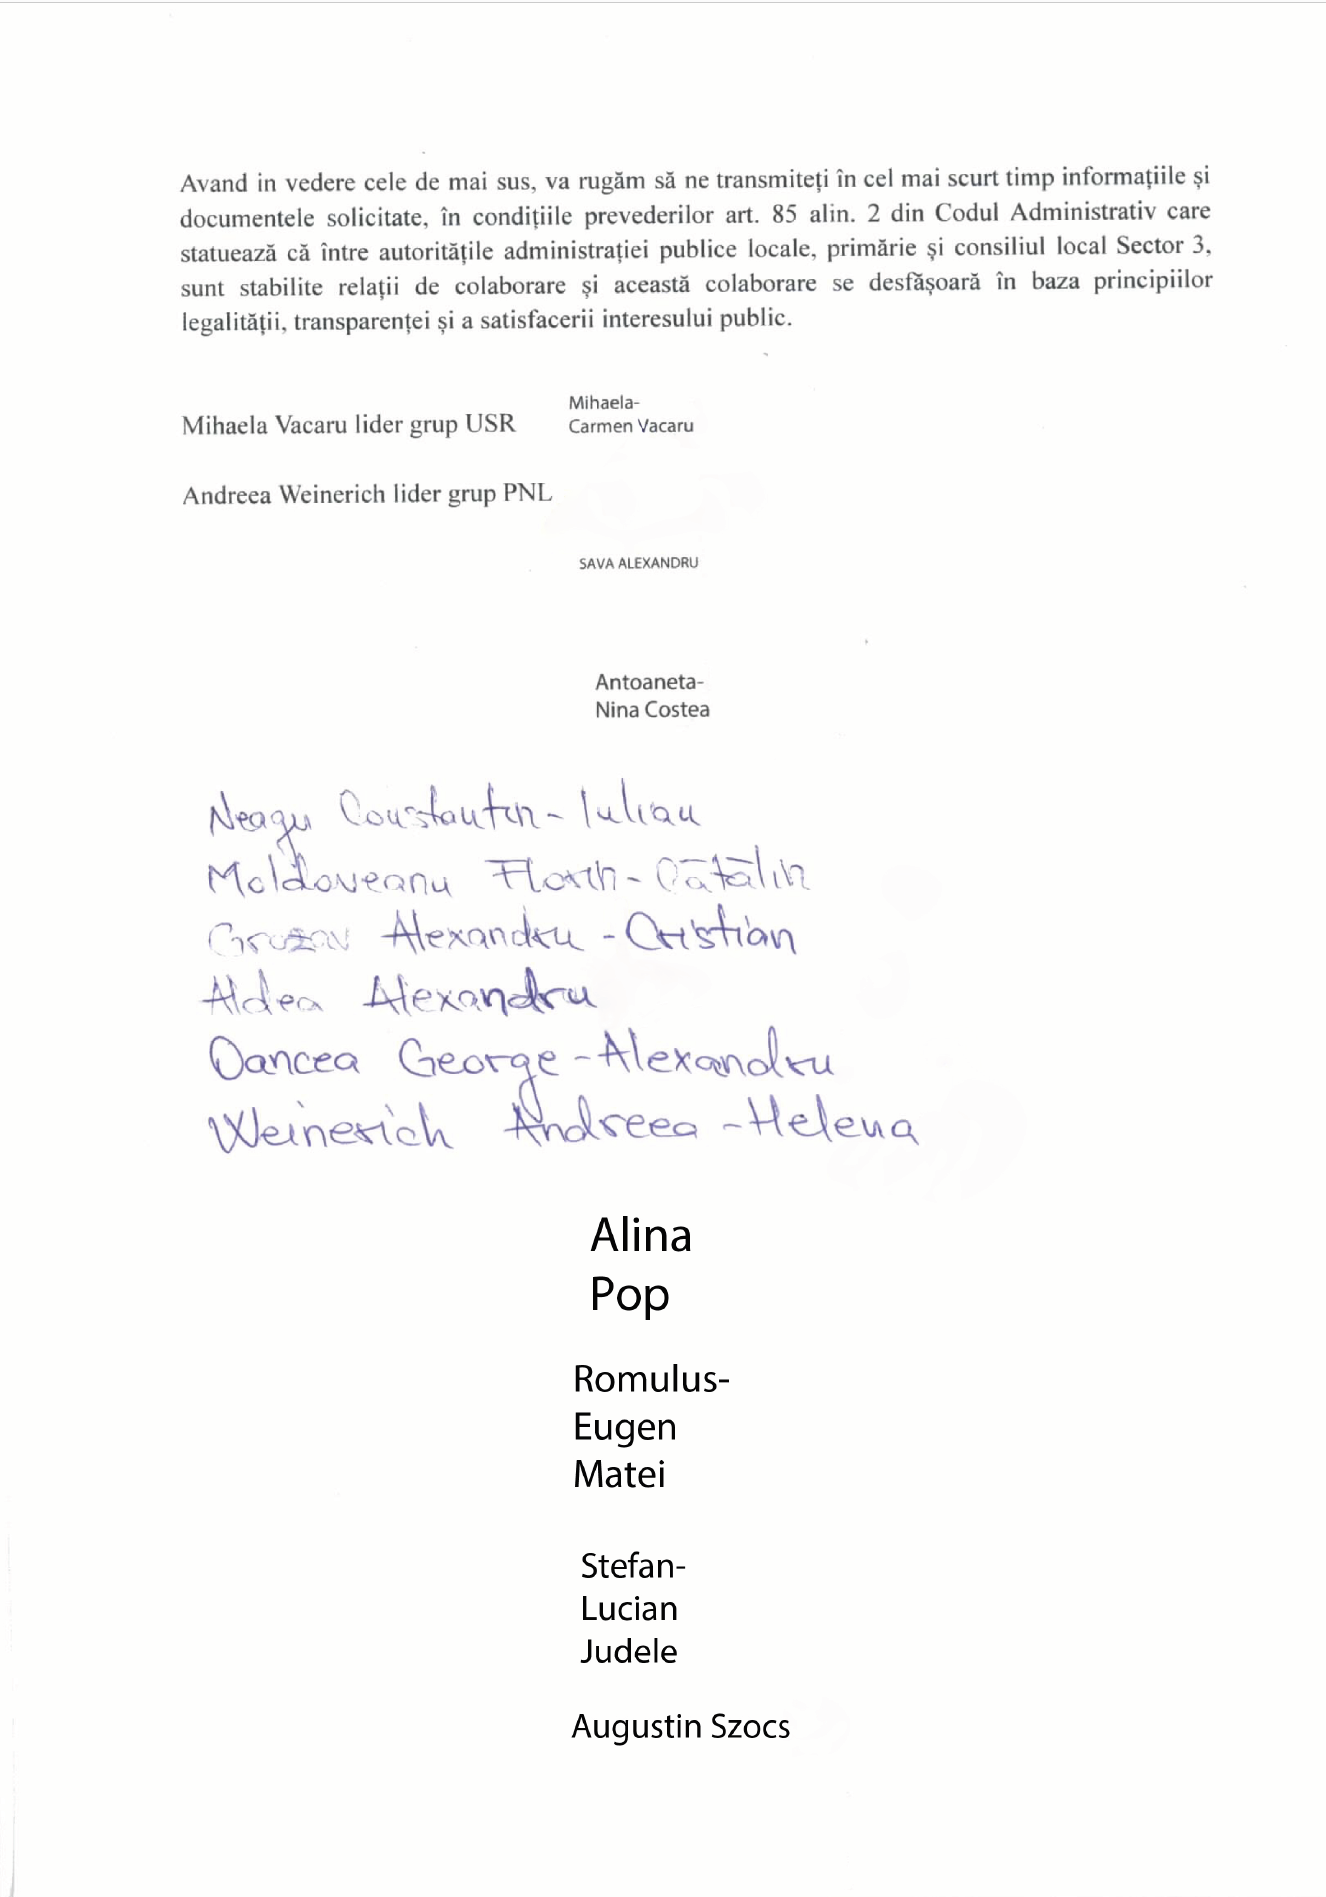 Avand in vedere cele de mai sus, va rugăm să ne transmiteți în cel mai scurt timp informațiile și
documentele solicitate, în condițiile prevederilor art. 85 alin. 2 din Codul Administrativ care
statuează că între autoritățile administrației publice locale, primărie și consiliul local Sector 3,
sunt stabilite relații de colaborare și această colaborare se desfășoară în baza principiilor
legalității, transparenței și a satisfacerii interesului public.
Mihaela Vacaru lider grup USR
Mihaela-
Carmen Vacaru
Andreea Weinerich lider grup PNL
SAVA ALEXANDRU
Antoaneta-
Nina Costea
Neagu Constantin-Iulian
Moldoveanu Florin-Cătălin
Alexandru-Cristian
Aldea Alexandru
Oancea George-Alexandru
Weinerich Andreea-Helena
Alina
Pop
Romulus-
Eugen
Matei
Stefan-
Lucian
Judele
Augustin Szocs